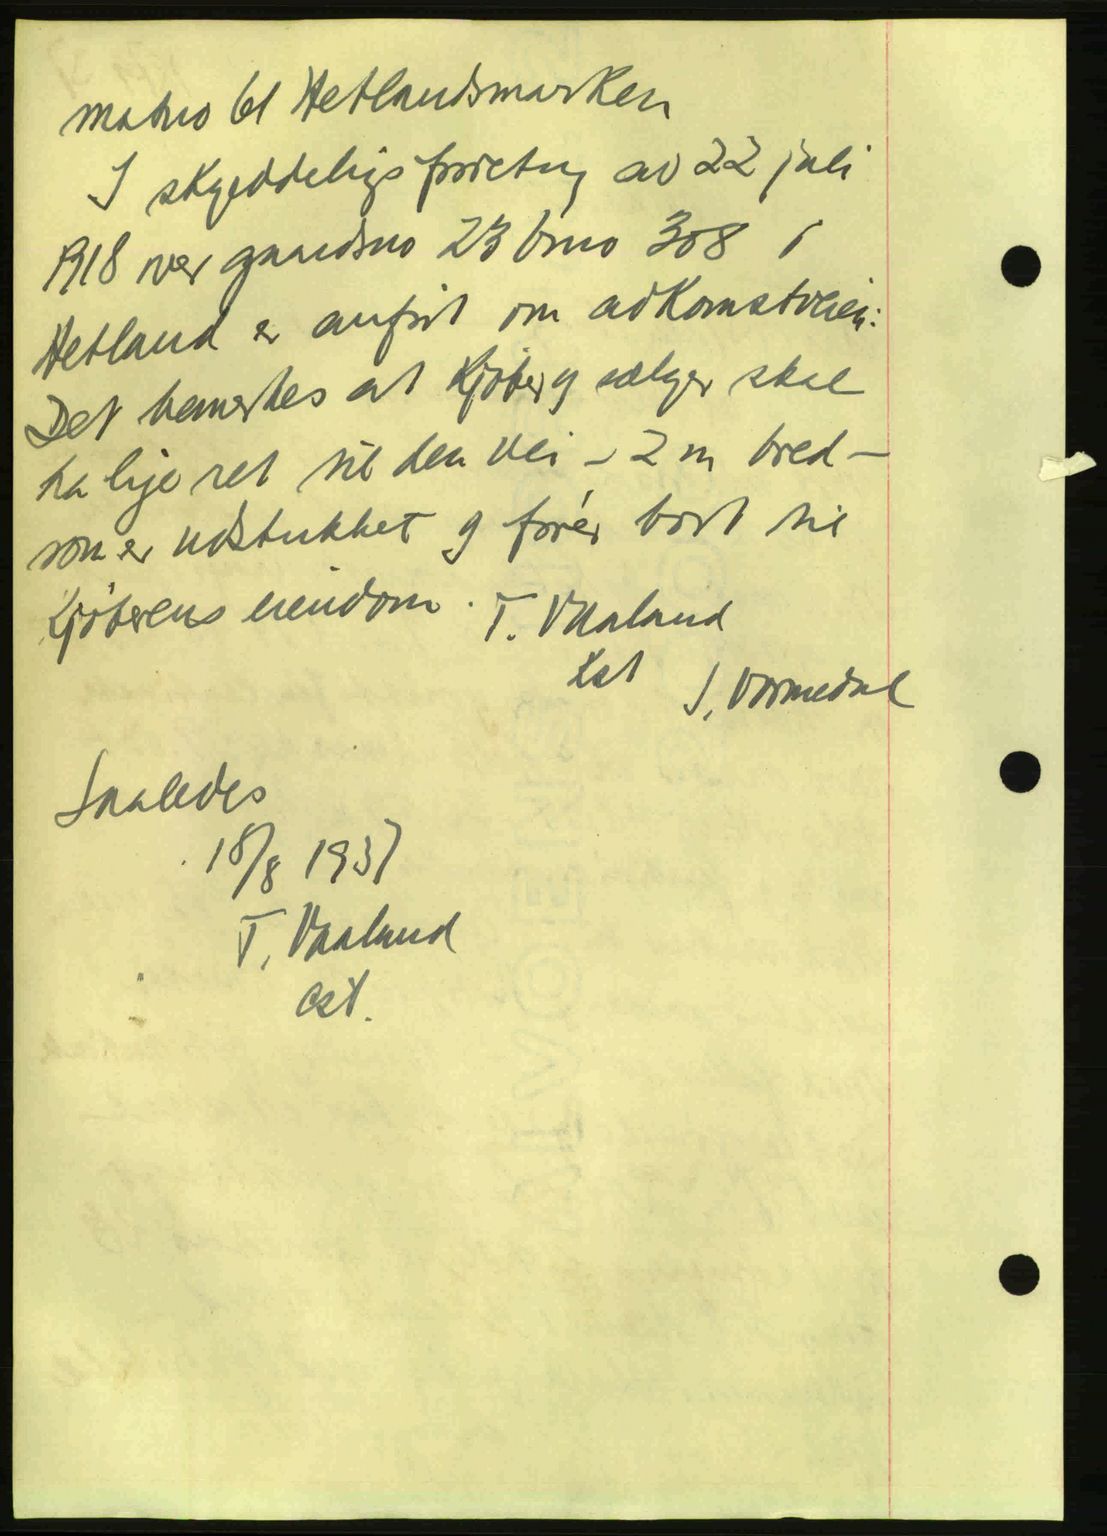 matno 61 Hetlandsmarken
I skylddelingsforretng av 22 juli
1918 ver gaardsno 23 brno 308 i
Hetland er anfört om adkomstveien:
Det bemerkes at kjöber og sælger skal
ha lige ret til den vei - 2 m bred -
som er udstukket og förer bort til
kjöberens eiendom. T. Vaaland
kst J. Vormedal
Saaledes
18/8 1937
T. Vaaland
cst.